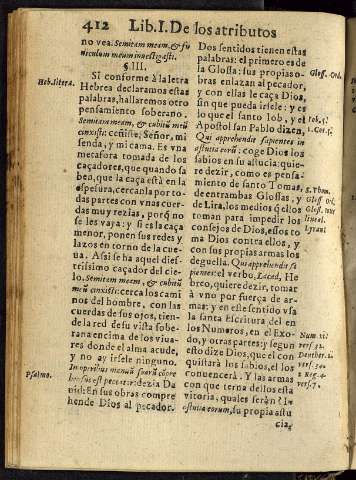 412 Lib. I. De los atributos
no vea. Semitam meam, & fu
niculum meum investigasti.
§. III.
Heb. litera.
SI conforme à la letra
Hebrea declaramos estas
palabras, hallaremos otro
pensamiento soberano.
Semitam meam, & cubiũ meũ
cinxisti: ceñiste, Señor, mi
senda, y mi cama. Es vna
metafora tomada de los
caçadores, que quando sa
ben, que la caça està en la
espesura, cercanla por to-
das partes con vnas cuer-
das muy rezias, porq̃ no
se les vaya: y si es la caça
menor, ponen sus redes y
lazos en torno de la cue-
ua. Asi se ha aquel dies-
trissimo caçador del cie-
lo. Semitam meam, & cubiũ
meũ cinxisti: cerca los cami
nos del hombre, con las
cuerdas de sus ojos, tien-
de la red de su vista sobe-
rana encima de los viua-
res donde el alma acude,
y no ay irsele ninguno.
Psalmo.
In operibus manuũ suarũ cõpre
hensus est peccator: dezia Da
uid: En sus obras compre
hende Dios al pecador.
Dos sentidos tienen estas
palabras: el primero es de
la Glossa: sus propias o-
Gloss. Ord.
bras enlazan al pecador,
y con ellas le caça Dios,
sin que pueda irsele: y es
lo que el santo Iob, y el
Iob. 5.
Apostol san Pablo dizen,
1. Cor. 3.
Qui apprehendit sapientes in
astutia eorũ: coge Dios los
sabios en su astucia: quie-
re dezir, como es pensa-
miento de santo Tomas,
S. Thom.
de entrambas Glossas, y
Gloss. Ord.
de Lira, los medios q̃ ellos
Gloss. inter
toman para impedir los
lineal.
consejos de Dios, essos to
Lyran.
ma Dios contra ellos, y
con sus propias armas los
deguella. Qui apprehendit sa
pientes: el verbo, Laced, He
breo, quiere dezir, tomar
à vno por fuerça de ar-
mas: y en este sentido vsa
la santa Escritura del en
los Numeros, en el Exo-
Num. 21.
do, y otras partes: y segun
vers. 32.
esto dize que Dios, el con
Deuther. 2.
quistarà los sabios, el los
vers. 34.
conuencerà. Y las armas
2. Reg. 4.
con que tendra dellos esta
vers. 7.
vitoria, quales seràn? In
astutia eorum, su propia astu
cia,